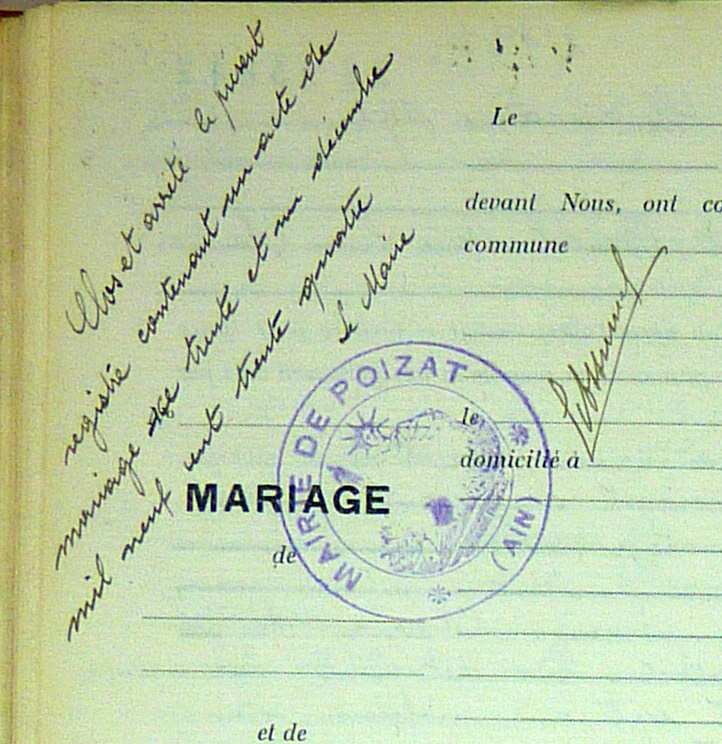 Clos et arrêté le présent
registre contenant un acte de
mariage le trente et un décembre
mil neuf cent trente quatre
Le Maire
MAIRIE DE POIZAT
(AIN)
MARIAGE
de
et de
Le
devant Nous, ont co
commune
le
domicilié à